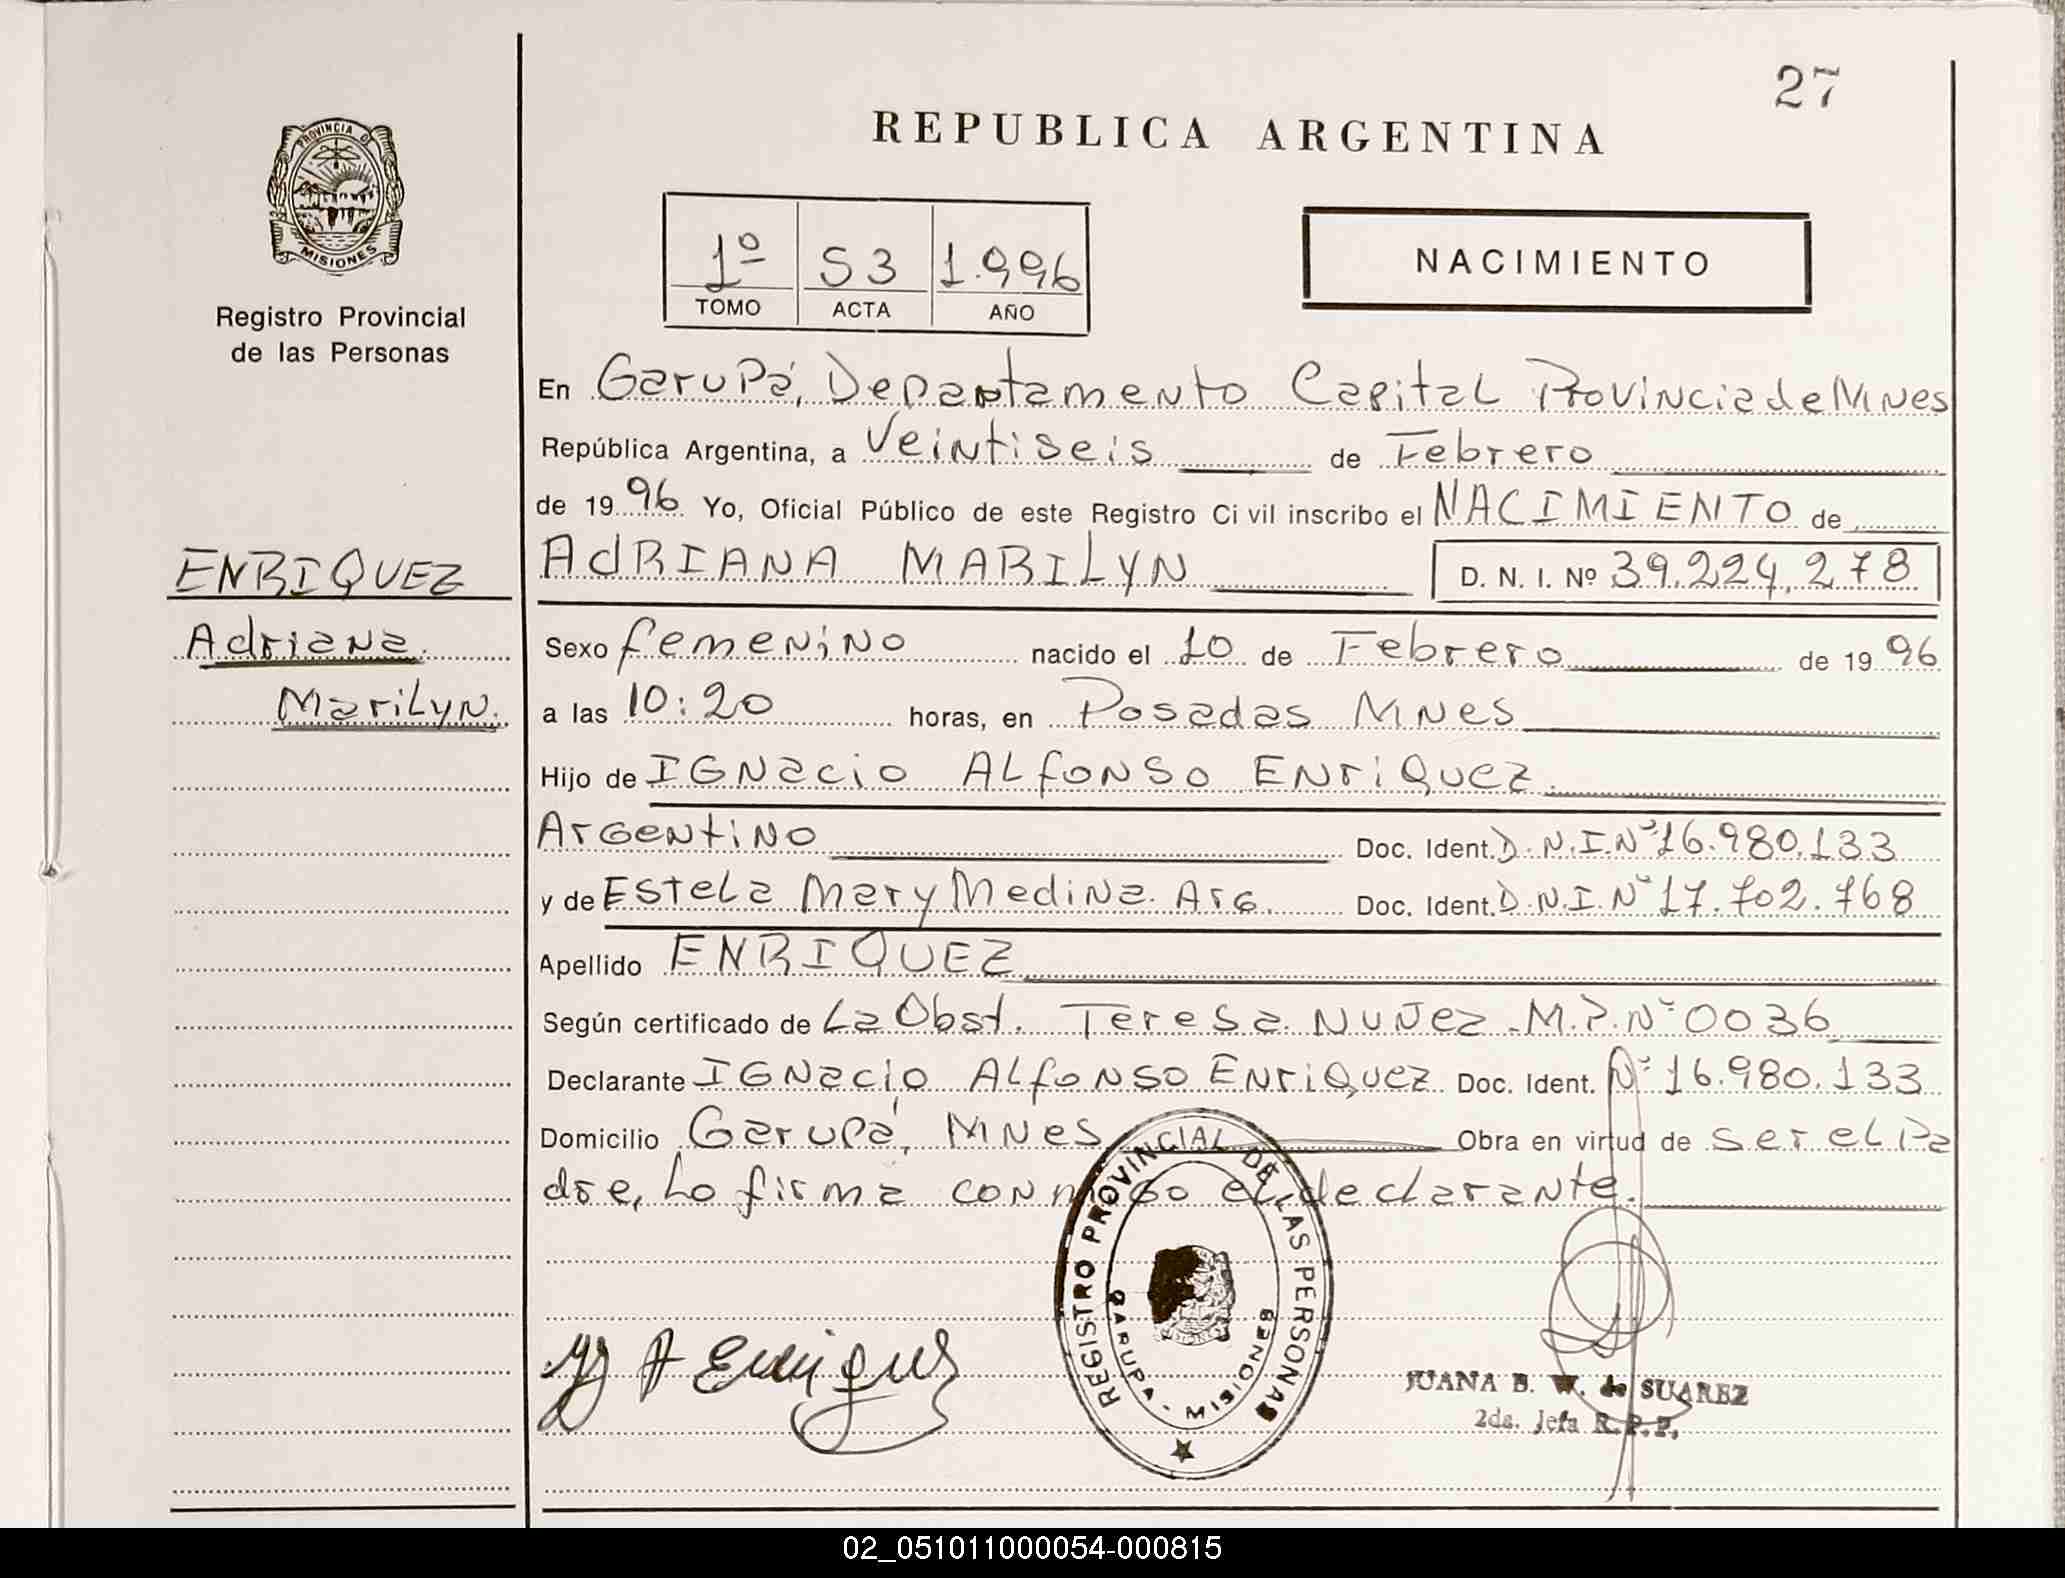 27
REPUBLICA ARGENTINA
PROVINCIA DE
MISIONES
Registro Provincial
de las Personas
1º 53 1.996
TOMO ACTA AÑO
NACIMIENTO
En Garupá, Departamento Capital Provincia de Mnes
República Argentina, a Veintiseis de Febrero
de 1996 Yo, Oficial Público de este Registro Civil inscribo el NACIMIENTO de
ENRIQUEZ
Adriana
Marilyn.
ADRIANA MARILYN D. N. I. Nº 39.224.278
Sexo femenino nacido el 10 de Febrero de 1996
a las 10:20 horas, en Posadas Mnes
Hijo de Ignacio Alfonso Enriquez
Argentino Doc. Ident. D.N.I.Nº 16.980.133
y de Estela Mary Medina. Arg. Doc. Ident. D.N.I.Nº 17.702.768
Apellido ENRIQUEZ
Según certificado de La Obst. Teresa Nuñez. M.P.Nº 0036
Declarante Ignacio Alfonso Enriquez Doc. Ident. Nº 16.980.133
Domicilio Garupá, Mnes Obra en virtud de ser el Pa
dre, Lo firma conmigo el declarante.
REGISTRO PROVINCIAL DE LAS PERSONAS
GARUPA - MISIONES
Enriquez
JUANA B. W. de SUAREZ
2da. Jefa R.P.P.
02_051011000054-000815